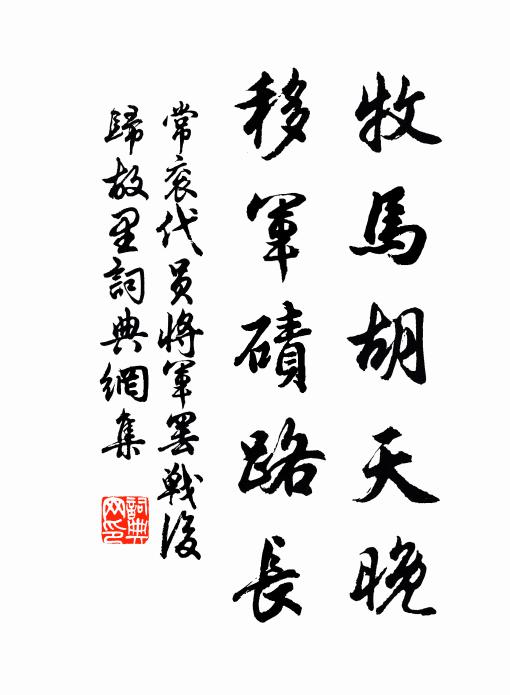 牧馬胡天晚
移軍磧路長
常衮代员將軍罢戰後
歸故里詞典網集
詞典网印